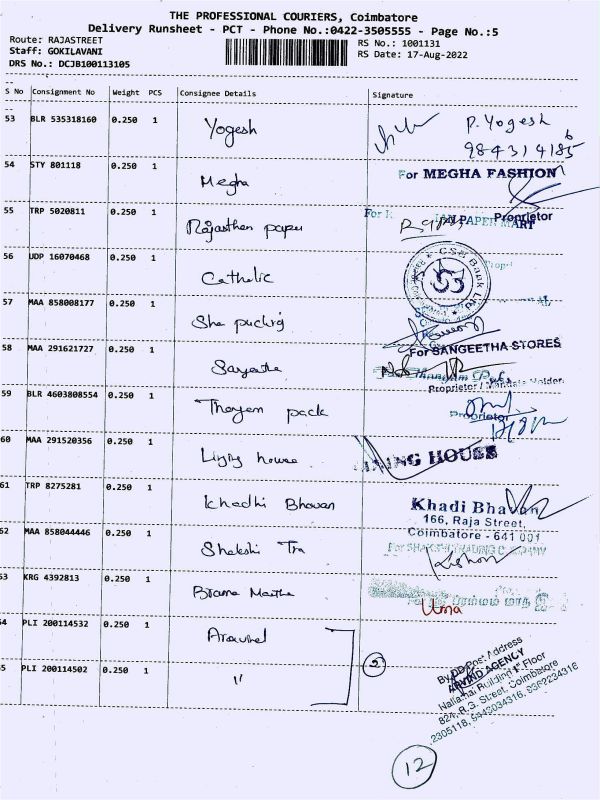 THE PROFESSIONAL COURIERS, Coimbatore
Delivery Runsheet - PCT - Phone No.:0422-3505555 - Page No.:5
Route: RAJASTREET
RS No.: 1001131
Staff: GOKILAVANI
RS Date: 17-Aug-2022
DRS No.: DCJB100113105
S No Consignment No Weight PCS Consignee Details Signature
53 BLR 535318160 0.250 1 Yogesh P. Yogesh
54 STY 801118 0.250 1 Megha For MEGHA FASHION
Proprietor
55 TRP 5020811 0.250 1 Rajasthan paper PAPER MART
56 UDP 16070468 0.250 1 Catholic CSB Bank Ltd
57 MAA 858008177 0.250 1 Sha packing
58 MAA 291621727 0.250 1 For SANGEETHA STORES
Proprietor
59 BLR 4603808554 0.250 1 pack Proprietor
60 MAA 291520356 0.250 1 house HOUSE
61 TRP 8275281 0.250 1 Khadhi Bhavan Khadi Bhavan
166, Raja Street,
Coimbatore - 641 001
62 MAA 858044446 0.250 1 Shakshi Tra
Kishor
53 KRG 4392813 0.250 1 Brama
Uma
54 PLI 200114532 0.250 1
55 PLI 200114502 0.250 1 "
2
Address
ARVIND AGENCY
Floor
824, R.G. Street, Coimbatore
12